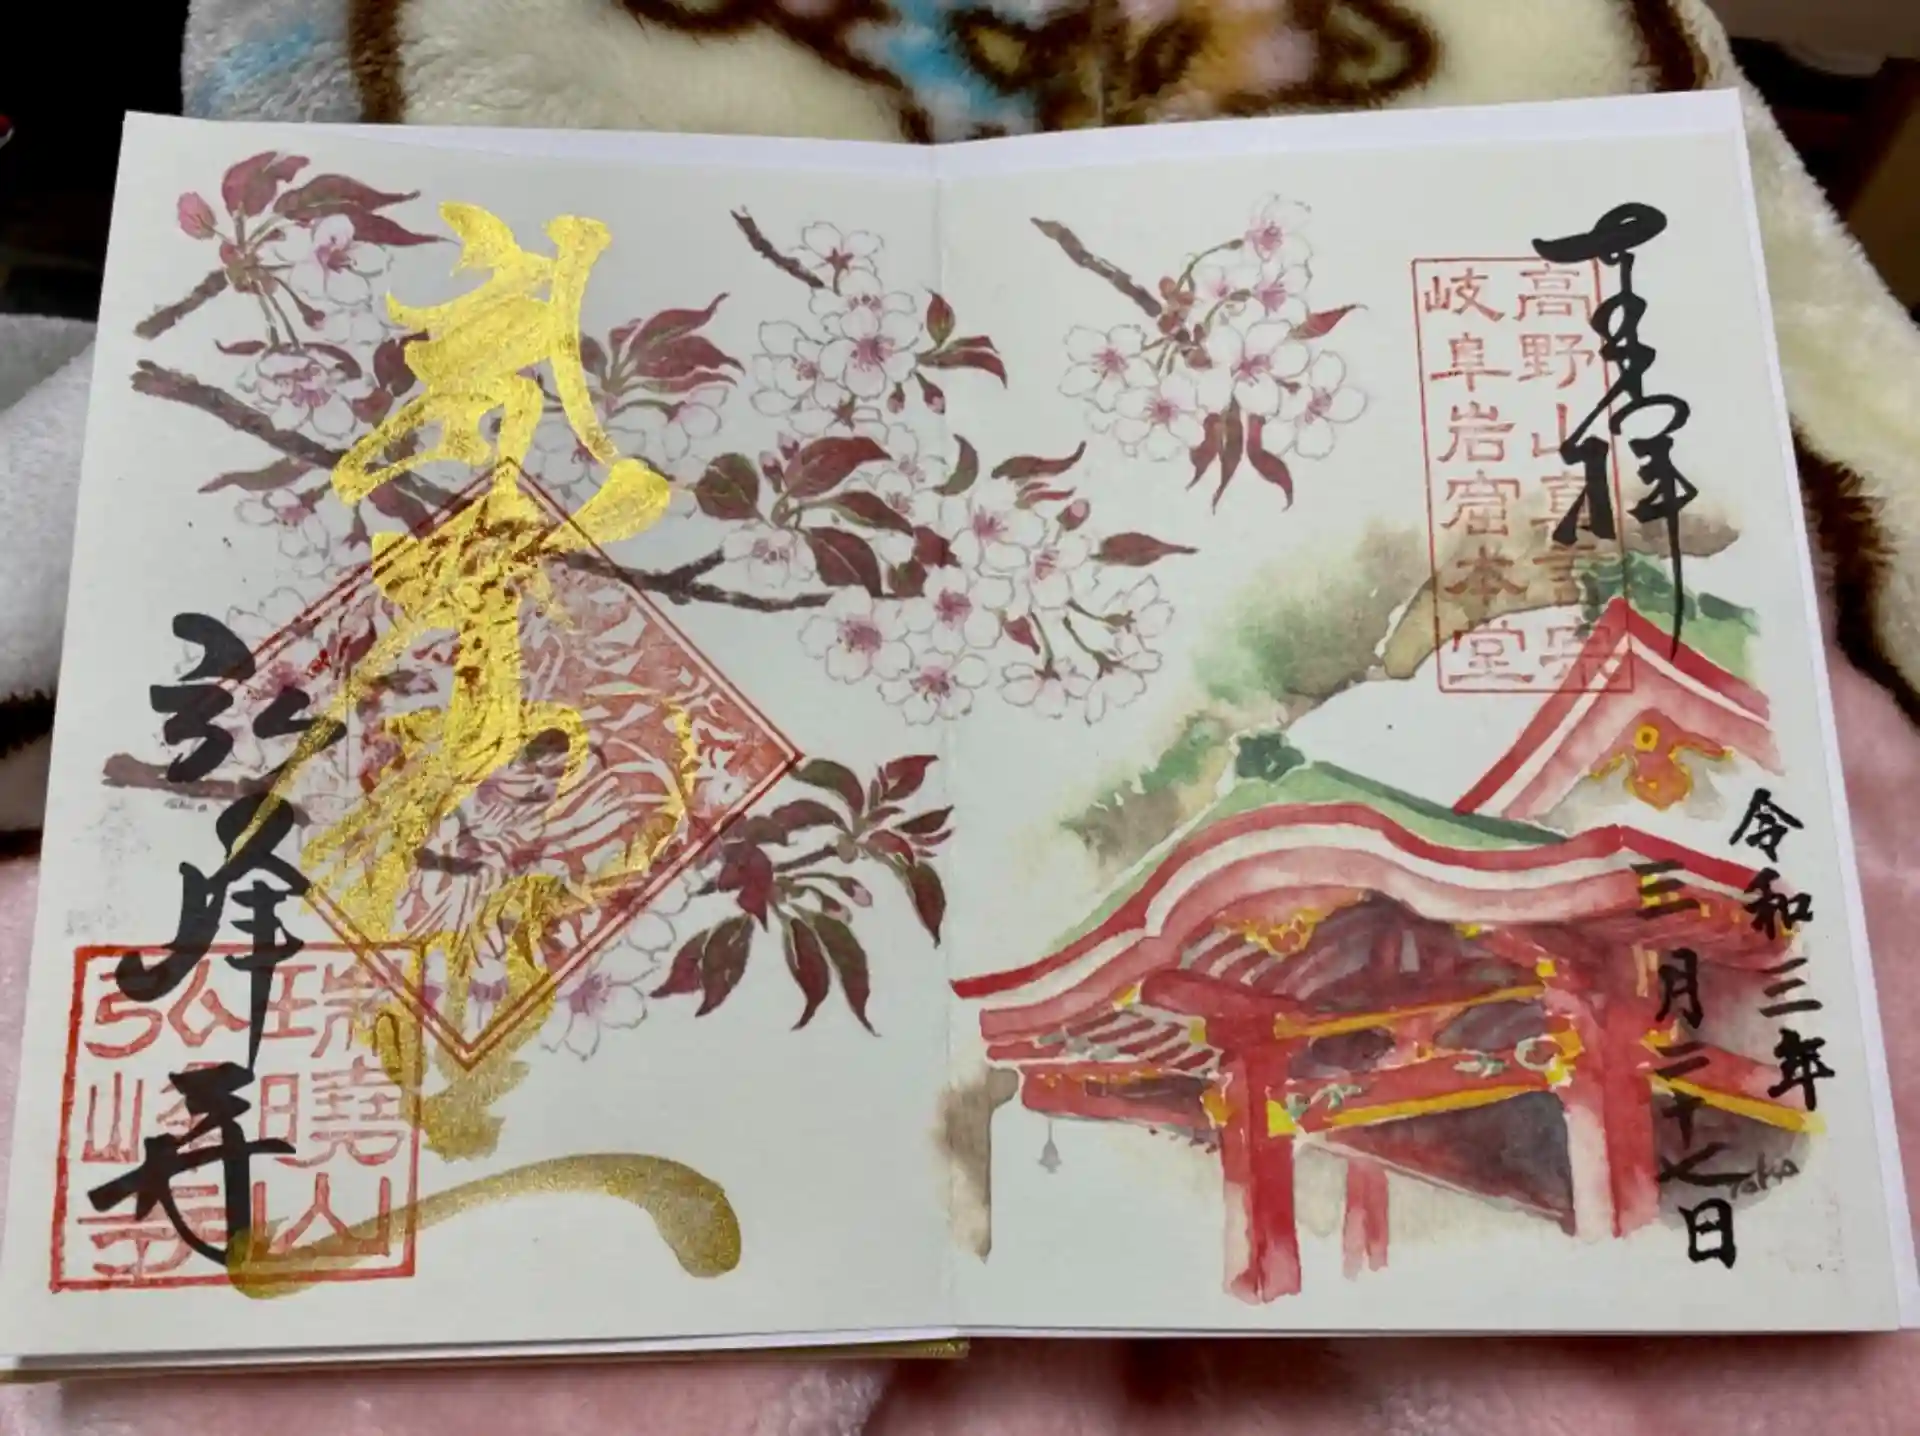 奉拝
高野山真言宗
岐阜岩窟本堂
令和三年
三月二十七日
弘峰寺
瑞曉山
弘峰寺